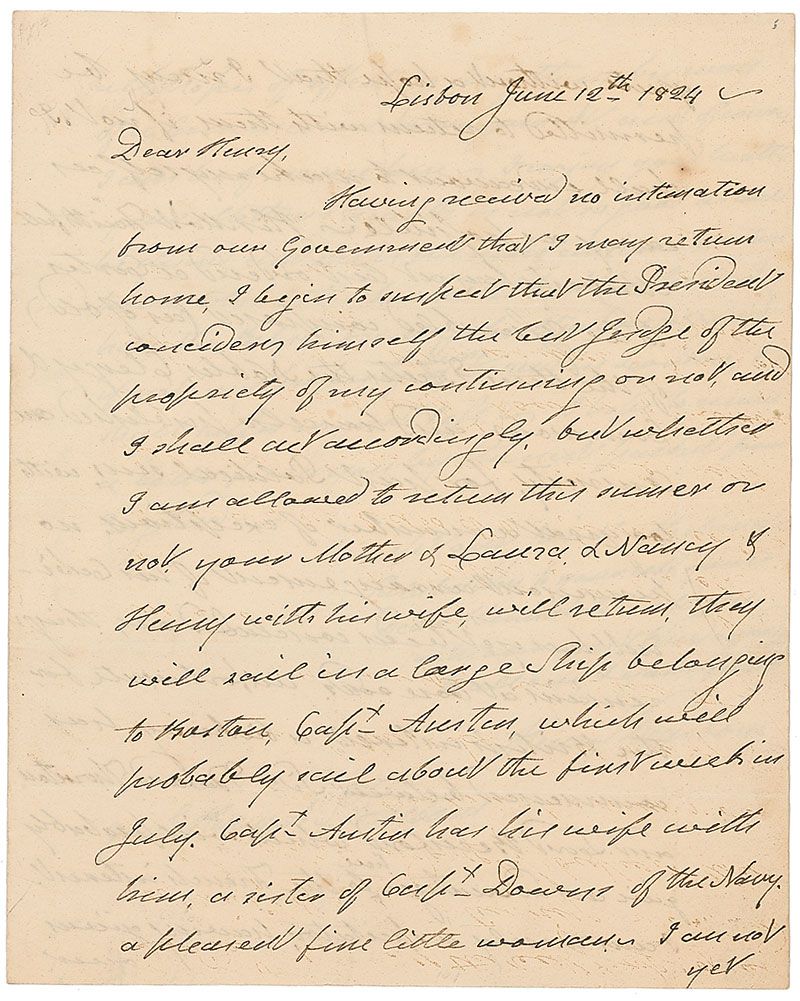 Lisbon June 12th 1824
Dear Henry,
Having received no intimation
from our Government that I may return
home, I begin to suspect that the President
conciders himself the best Judge of the
propriety of my continuing or not, and
I shall act accordingly, but whether
I am allowed to return this sumer or
not your Mother & Laura, & Nancy &
Henry with his wife, will return, they
will sail in a large Ship belonging
to Boston, Capt Austin, which will
probably sail about the first week in
July. Capt Austin has his wife with
him, a sister of Capt Downs of the Navy.
a pleasent fine little woman. I am not
yet